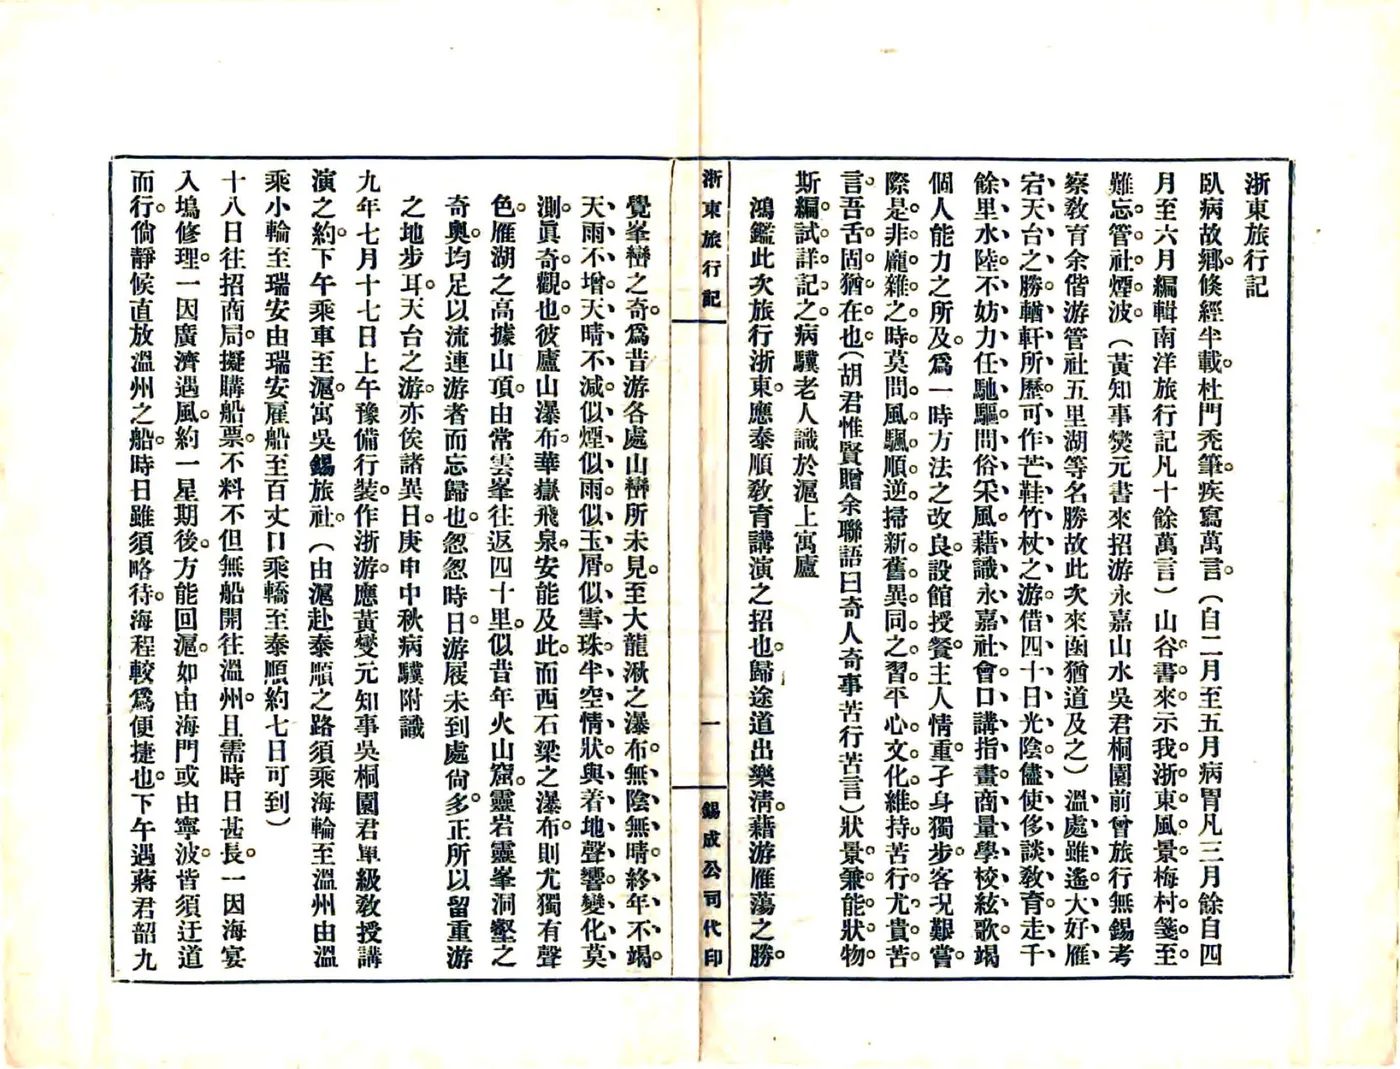 浙東旅行記
臥病故鄉。倏經半載。杜門禿筆。疾寫萬言。(自二月至五月病胃凡三月餘自四
月至六月編輯南洋旅行記凡十餘萬言)山谷書來。示我浙東風景。梅村箋至。
難忘管社煙波。(黃知事爕元書來招游永嘉山水吳君桐園前曾旅行無錫考
察敎育余偕游管社五里湖等名勝故此次來函猶道及之)溫處雖遙、大好雁
宕天台之勝、輶軒所歷、可作芒鞋竹杖之游。借四十日光陰、儘使侈談敎育、走千
餘里水陸、不妨力任馳驅、問俗采風、藉識永嘉社會、口講指畫、商量學校絃歌。竭
個人能力之所及。爲一時方法之改良。設館授餐。主人情重。孑身獨步。客况艱嘗。
際是非龐雜之時。莫問風颿順逆。掃新舊異同之習。平心文化維持。苦行尤貴苦
言。吾舌固猶在也。(胡君惟賢贈余聯語曰奇人奇事苦行苦言)狀景兼能狀物。
斯編試詳記之。病驥老人識於滬上寓廬
鴻鑑此次旅行浙東。應泰順敎育講演之招也。歸途道出樂淸。藉游雁蕩之勝。
浙東旅行記
一
錫成公司代印
覺峯巒之奇。爲昔游各處山巒所未見。至大龍湫之瀑布。無陰無晴、終年不竭。
天雨不增、天晴不減。似煙似雨、似玉屑似雪珠、半空情狀、與着地聲響、變化莫
測。眞奇觀也。彼廬山瀑布。華嶽飛泉。安能及此。而西石梁之瀑布。則尤獨有聲
色。雁湖之高據山頂。由常雲峯往返四十里。似昔年火山窟。靈岩靈峯洞壑之
奇奧。均足以流連游者而忘歸也。忽忽時日。游履未到處尙多。正所以留重游
之地步耳。天台之游。亦俟諸異日。庚申中秋病驥附識
九年七月十七日上午豫備行裝。作浙游。應黃爕元知事吳桐園君單級敎授講
演之約。下午乘車至滬。寓吳錫旅社。(由滬赴泰順之路須乘海輪至溫州由溫
乘小輪至瑞安由瑞安雇船至百丈口乘轎至泰順約七日可到)
十八日往招商局。擬購船票。不料不但無船開往溫州。且需時日甚長。一因海宴
入塢修理。一因廣濟遇風。約一星期後。方能回滬。如由海門或由寧波。皆須迂道
而行。倘靜候直放溫州之船。時日雖須略待。海程較爲便捷也。下午遇蔣君韶九